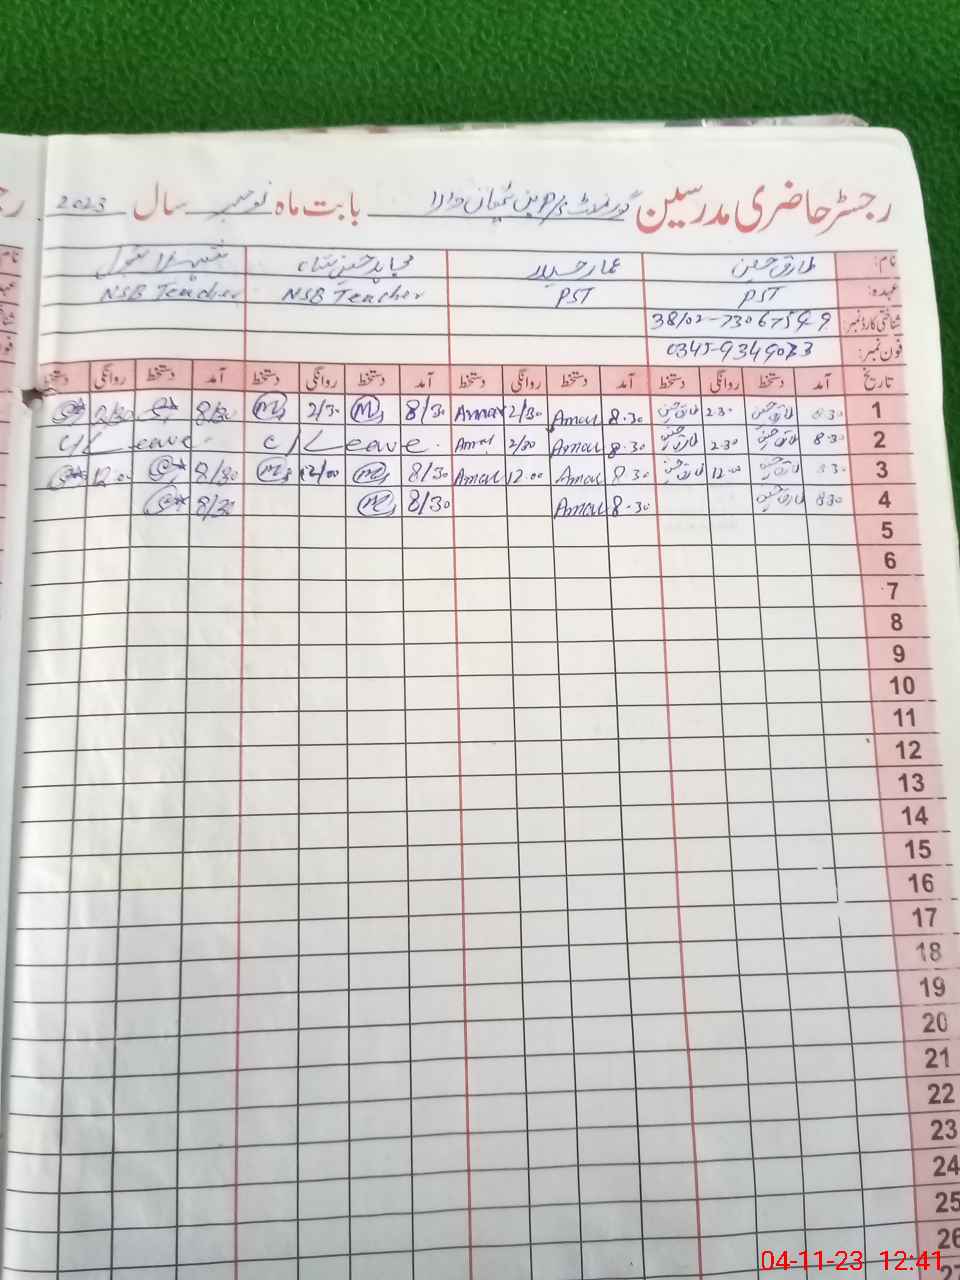 رجسٹر حاضری مدرسین گورنمنٹ P/S بابت ماہ نومبر سال 2023
نام: طارق حسین عمار حیدر مجاہد حسین شاہ
عہدہ: PST PST NSB Teacher NSB Teacher
شناختی کارڈ نمبر:
فون نمبر:
تاریخ آمد دستخط روانگی دستخط آمد دستخط روانگی دستخط آمد دستخط روانگی دستخط آمد دستخط روانگی دستخط
1 8.30 طارق حسین 2.30 طارق حسین 8.30 Amar 2/30 Amar 8/30 2/30 8/30 2/30
2 8.30 طارق حسین 2.30 طارق حسین 8.30 Amar 2/30 Amar C/Leave C/Leave
3 8.30 طارق حسین 12.00 طارق حسین 8.30 Amar 12.00 Amar 8/30 12/00 8/30 12.00
4 8.30 طارق حسین 8.30 Amar 8/30 8/30
5
6
7
8
9
10
11
12
13
14
15
16
17
18
19
20
21
22
23
24
25
26
27
04-11-23 12:41